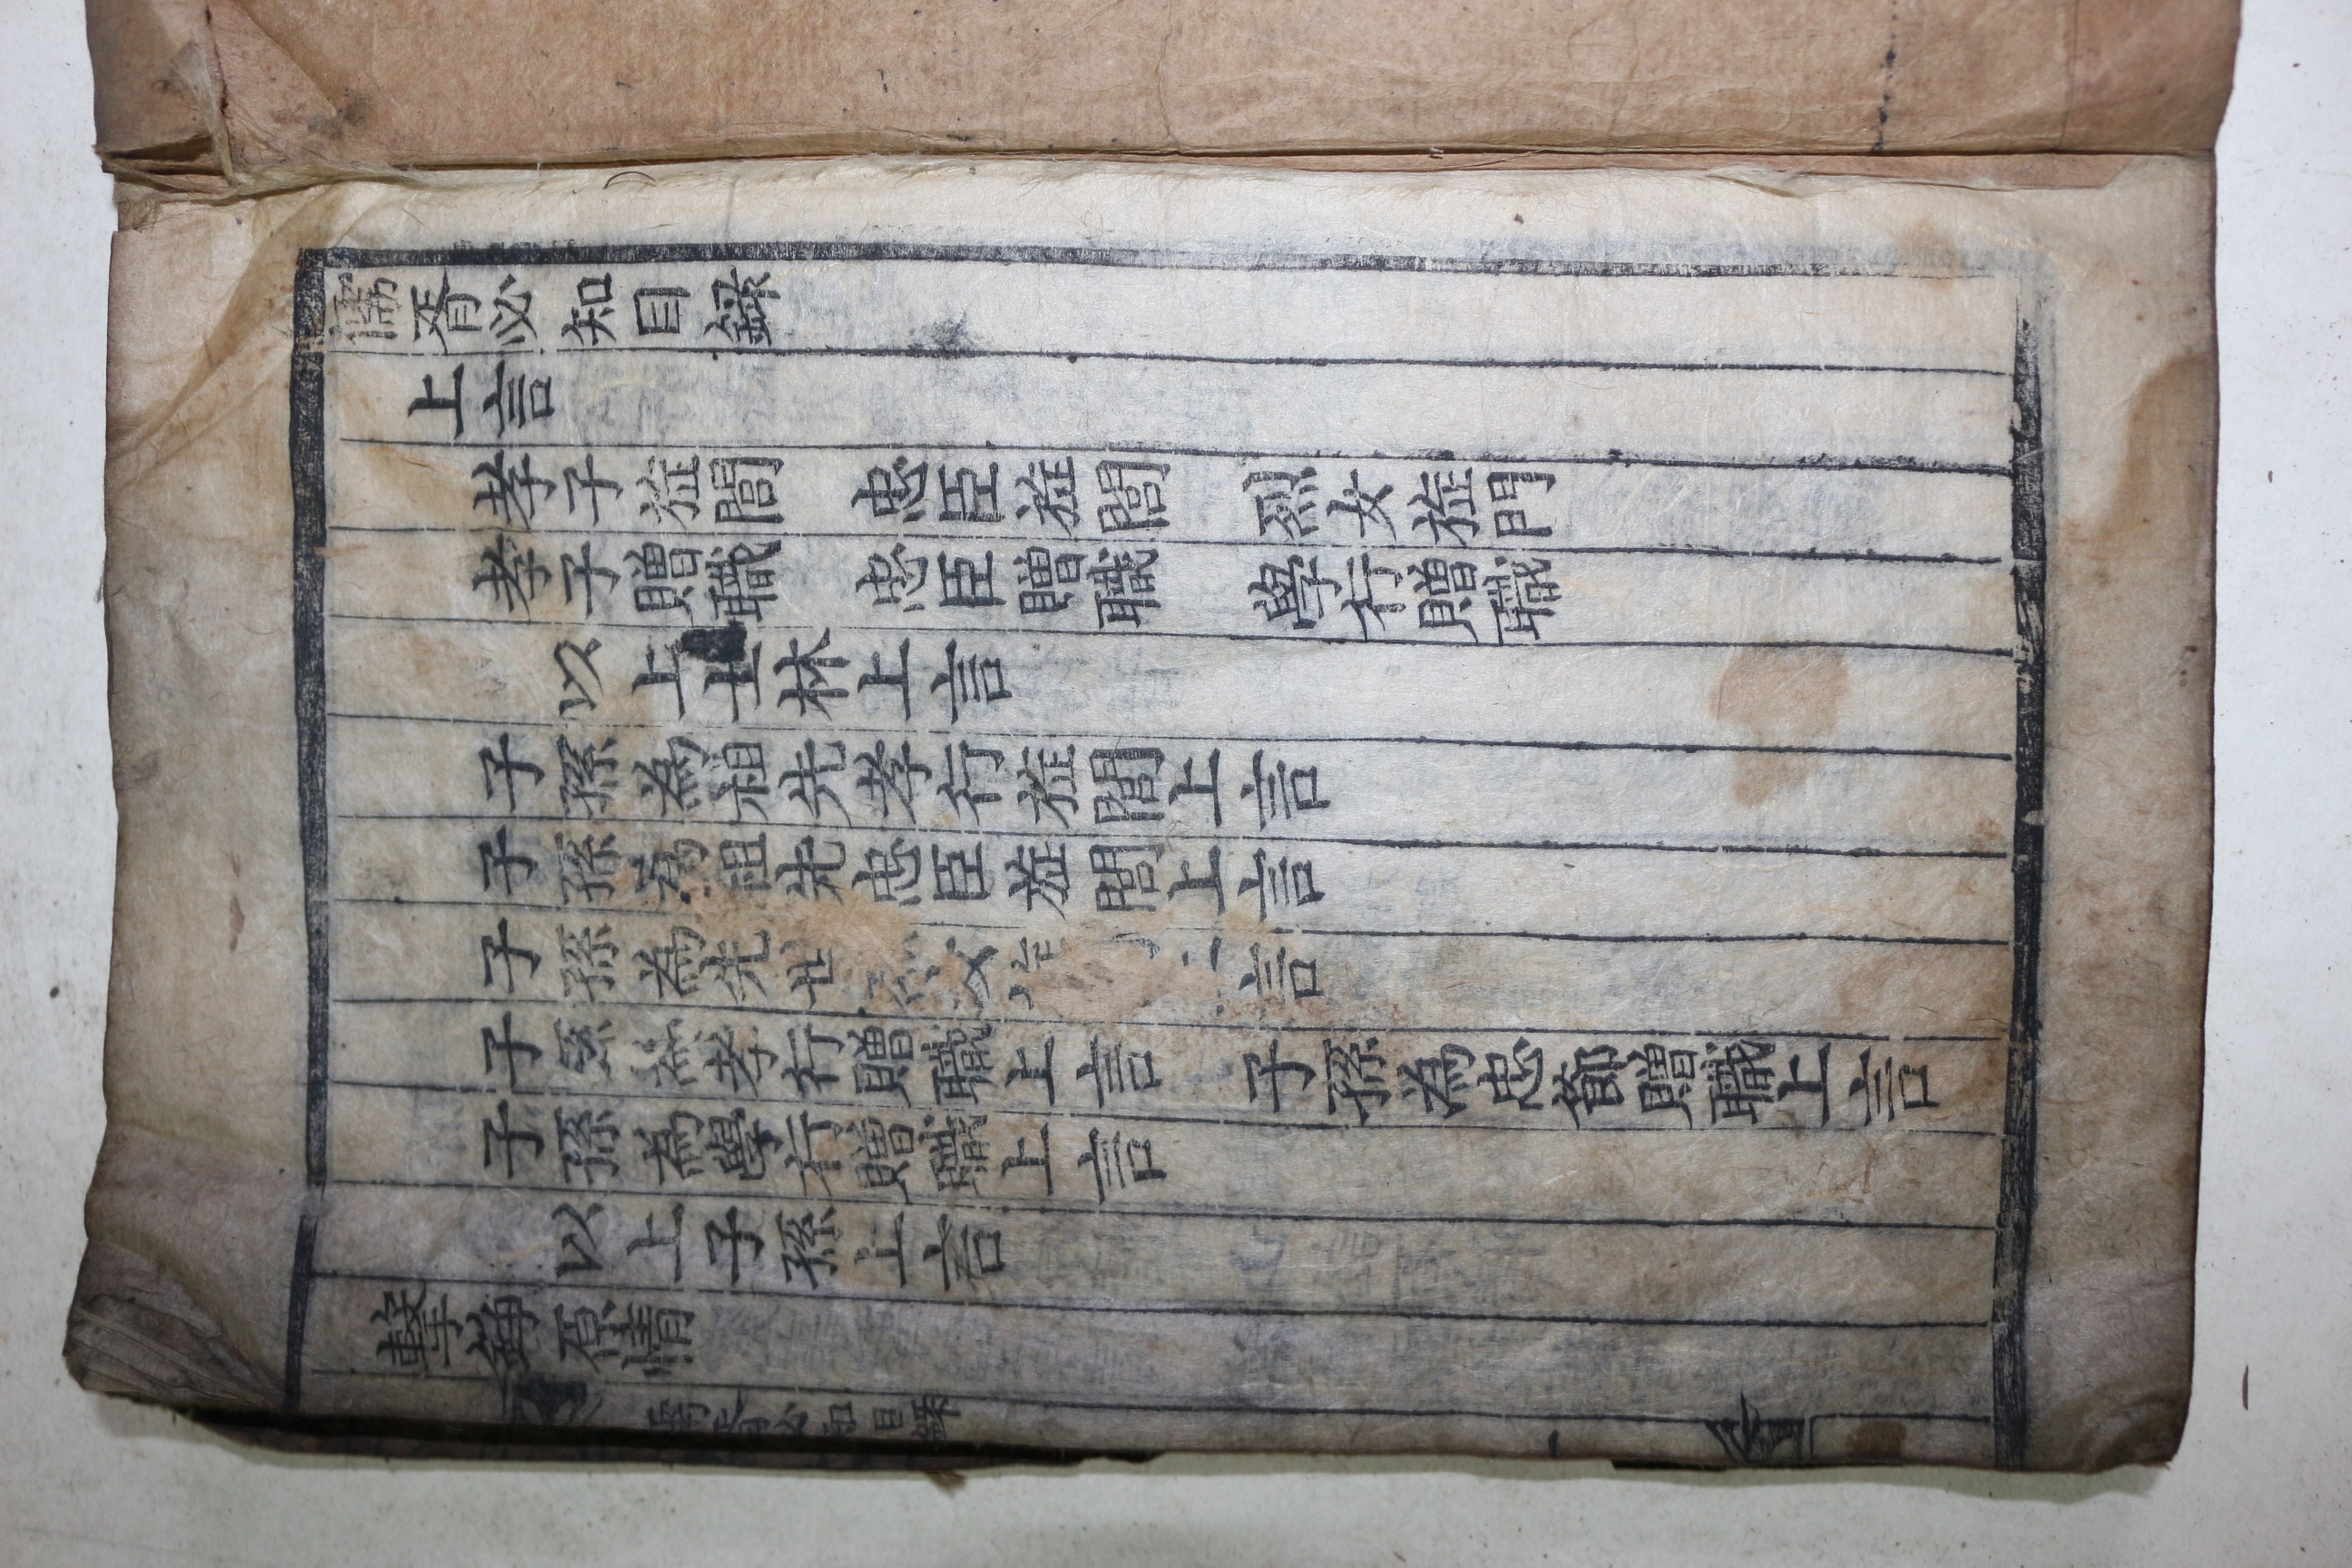 儒胥必知目錄
上言
孝子旌閭 忠臣旌閭 烈女旌門
孝子贈職 忠臣贈職 學行贈職
以上士林上言
子孫爲祖先孝行旌閭上言
子孫爲祖先忠臣旌閭上言
子孫爲先世 言
子孫爲孝行贈職上言 子孫爲忠節贈職上言
子孫爲學行贈職上言
以上子孫上言
擊錚原情
儒胥必知目錄